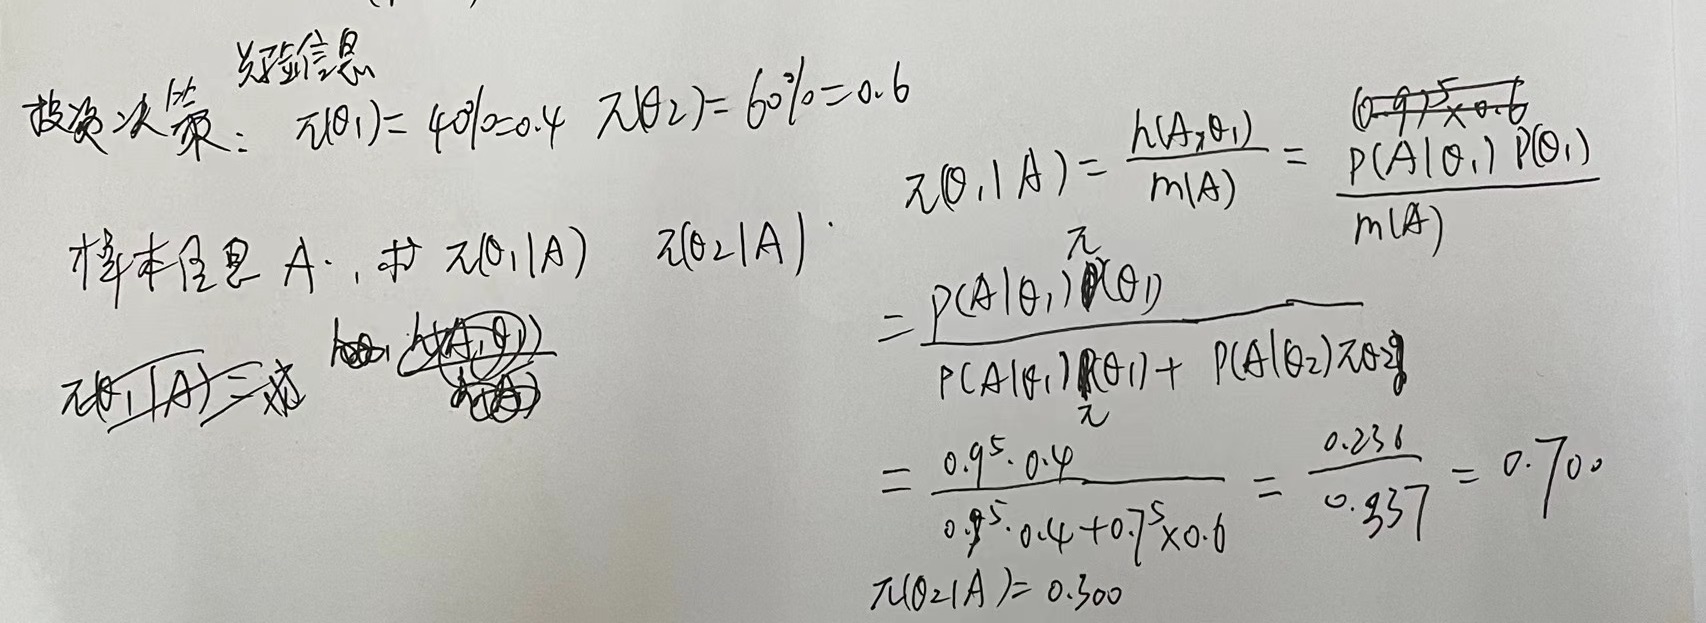 先验信息
投资决策: π(θ₁)=40%=0.4 π(θ2)=60%=0.6
样本信息 A., 求 π(θ₁|A) π(θ2|A).
π(θ₁|A)=
π(θ₁|A)= h(A,θ₁)/m(A) = P(A|θ₁)P(θ₁)/m(A)
(0.9)⁵×0.6
= P(A|θ₁)π(θ₁)/P(A|θ₁)π(θ₁)+P(A|θ2)πθ2
= 0.9⁵·0.4/0.9⁵·0.4+0.7⁵×0.6 = 0.236/0.337 = 0.700
π(θ2|A)=0.300